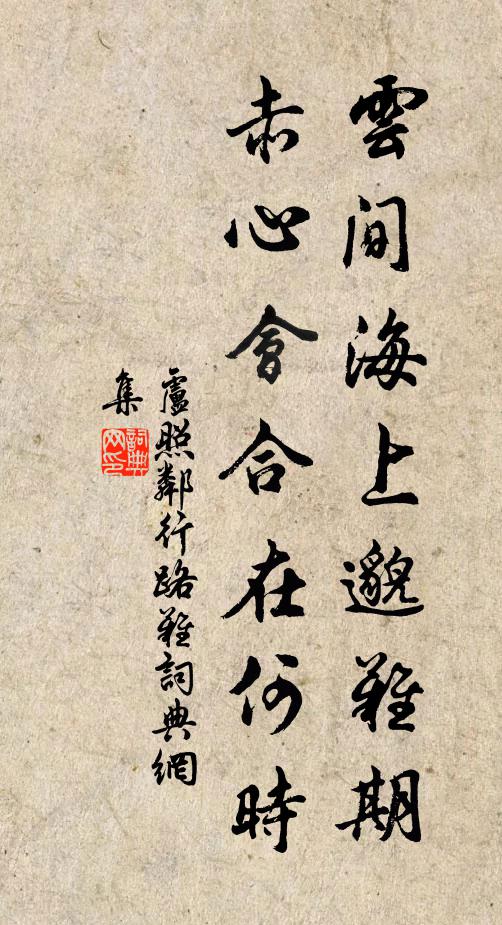 雲間海上邈難期
赤心會合在何時
盧照鄰行路難詞典網
集
詞典
网印